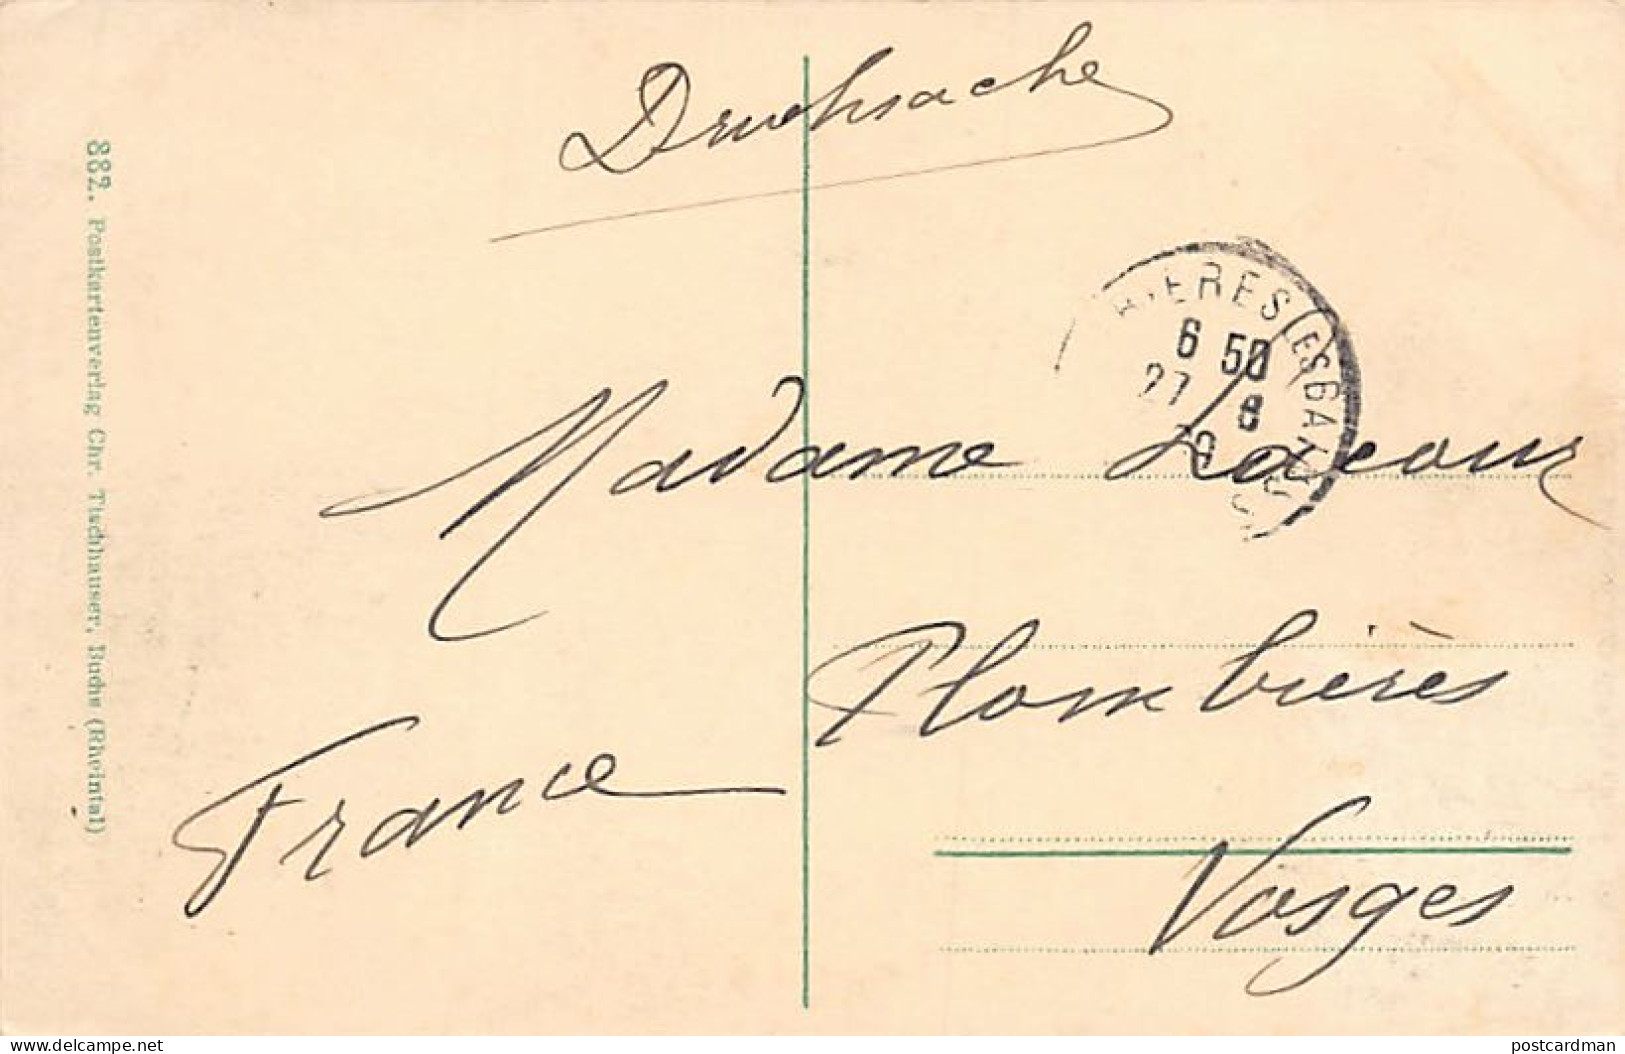 Drucksache
882. Postkartenverlag Chr. Tischhauser, Buchs (Rheintal)
IÈRES LES BAINS
6 50
27 8
09
Madame Lacour
Plombières
France
Vosges
delcampe.net
postcardman